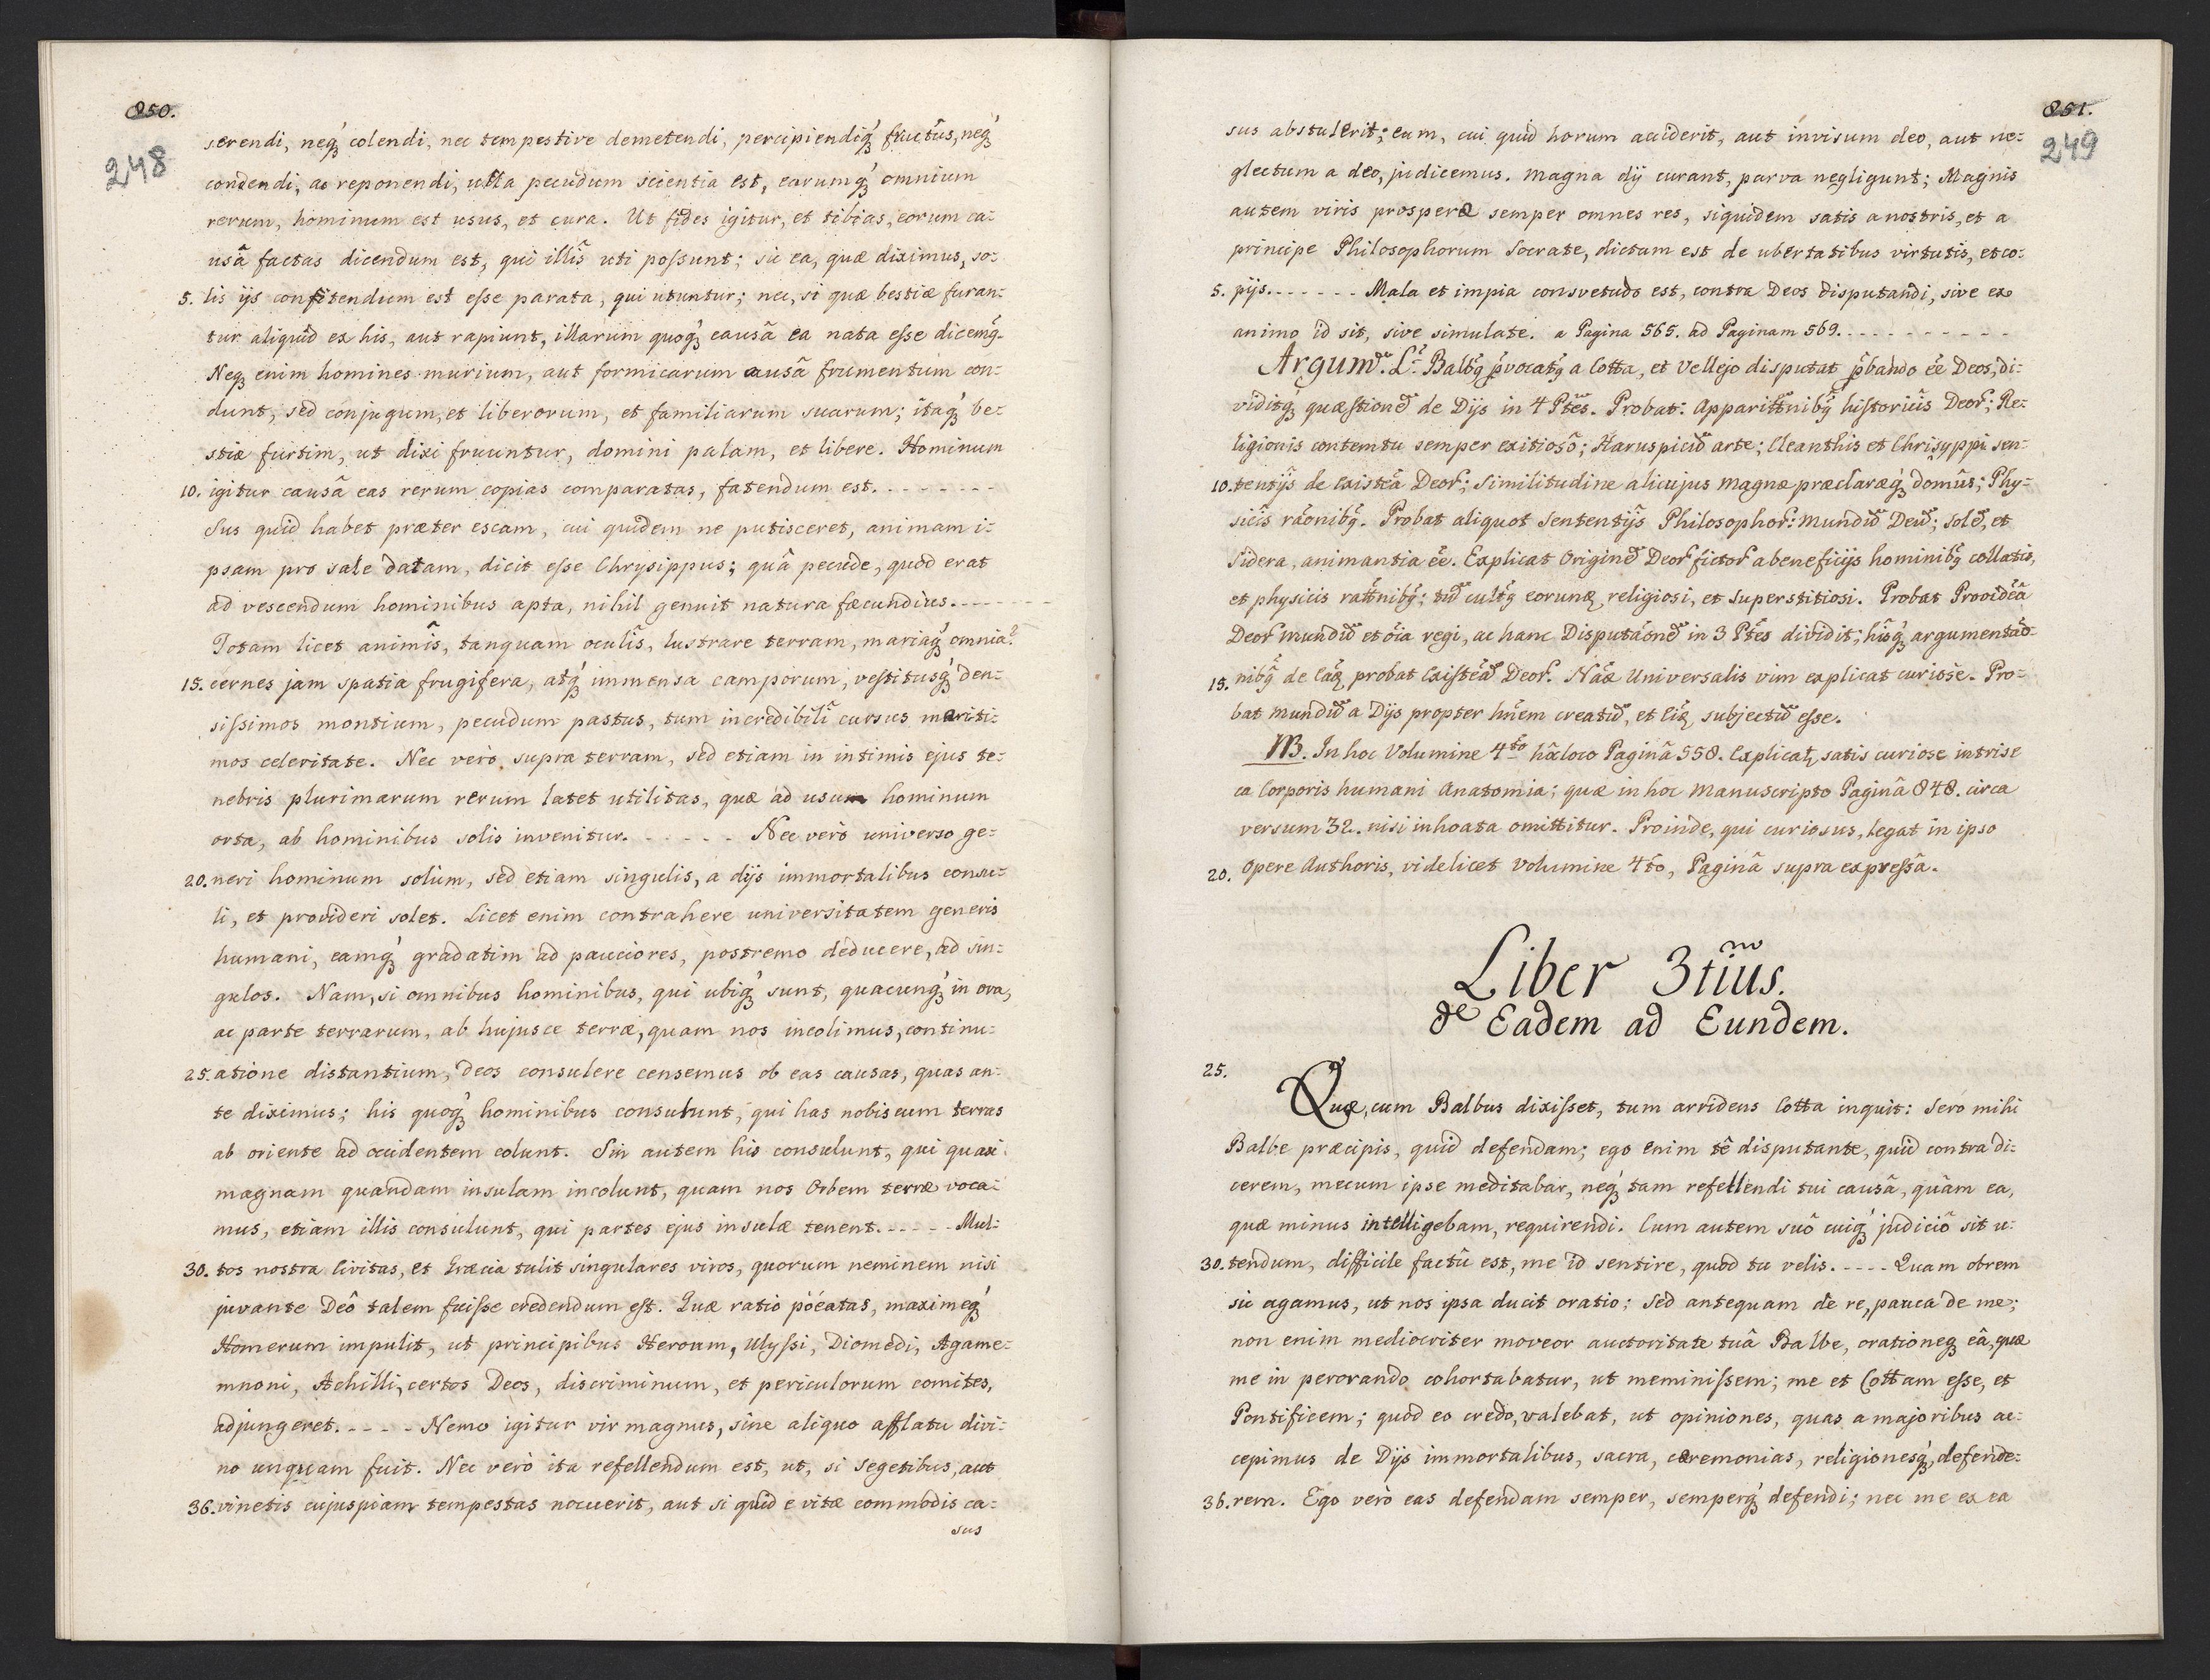 850.
248
serendi, neq́ꝫ colendi, nec tempestive demetendi, percipiendiq́ꝫ fructûs, neq́ꝫ
condendi, ac reponendi, ulla pecudum scientia est, earumq́ꝫ omnium
rerum, hominum est usus, et cura. Ut fides igitur, et tibias, eorum ca:
usâ factas dicendum est, qui illîs uti poſsunt; sic ea, quæ diximus, so:
5. lis ijs confitendum est eſse parata, qui utuntur; nec, si quæ bestiæ furan:
tur aliquid ex his, aut rapiunt, illarum quoq́ꝫ causâ ea nata eſse dicemꝗ.
Neqꝫ enim homines murium, aut formicarum causâ frumentum con:
dunt, sed conjugum, et liberorum, et familiarum suarum; itaq́ꝫ be:
stiæ furtim, ut dixi fruuntur, domini palam, et libere. Hominum
10. igitur causâ eas rerum copias comparatas, fatendum est. - - - - - - - -
Sus quid habet præter escam, cui quidem ne putisceret, animam i:
psam pro sale datam, dicit eſse Chrysippus; quâ pecude, quòd erat
ad vescendum hominibus apta, nihil genuit natura fæcundius. - - - - - - -
Totam licet animîs, tanquam oculîs, lustrare terram, mariaq́ꝫ omnia?
15. cernes jam spatia frugifera, atq́ꝫ immensa camporum, veſtitusq́ꝫ den:
siſsimos montium, pecudum pastus, tum incredibilî cursus mariti:
mos celeritate. Nec verò supra terram, sed etiam in intimis ejus te:
nebris plurimarum rerum latet utilitas, quæ ad usum hominum
orta, ab hominibus solis invenitur. - - - - - Nec verò universo ge:
20. neri hominum solùm, sed etiam singulis, a dijs immortalibus consu:
li, et provideri solet. Licet enim contrahere universitatem generis
humani, eamq́ꝫ gradatim ad pauciores, postremo deducere, ad sin:
gulos. Nam, si omnibus hominibus, qui ubiq́ꝫ sunt, quacunq́ꝫ in ora,
ac parte terrarum, ab hujusce terræ, quam nos incolimus, continu:
25. atione distantium, Deos consulere censemus ob eas causas, quas an:
te diximus; his quoq́ꝫ hominibus consulunt, qui has nobiscum terras
ab oriente ad occidentem colunt. Sin autem his consulunt, qui quasi
magnam quandam insulam incolunt, quam nos Orbem terræ voca:
mus, etiam illis consulunt, qui partes ejus insulæ tenent. - - - - - Mul:
30. tos nostra Civitas, et Græcia tulit singulares viros, quorum neminem nisi
juvante Deô talem fuiſse credendum eſt. Quæ ratio pòéatas, maximeq́ꝫ
Homerum impulit, ut principibus Heroum, Ulyſsi, Diomedi, Agame:
mnoni, Achilli, certos Deos, discriminum, et periculorum comites,
adjungeret. - - - - Nemo igitur vir magnus, sine aliquo afflatu divi:
no unquam fuit. Nec verò ita refellendum est, ut, si segetibus, aut
36. vinetis cujuspiam tempestas nocuerit, aut si quid e vitæ commodis ca:
sus
851.
249
sus abstulerit; eum, cui quid horum acciderit, aut invisum deo, aut ne:
glectum a deo, judicemus. Magna dij curant, parva negligunt; Magnis
autem viris prosperæ semper omnes res, siquidem satis a nostris, et a
principe Philosophorum Socrate, dictum est de ubertatibus virtutis, et co:
5. pijs. - - - - - - - Mala et impia consvetudo est, contra Deos disputandi, sive ex
animo id sit, sive simulate. a Pagina 565. ad Paginam 569. - - - - - - - - - -
Argum. L. Balbꝗ p̃vocatꝗ a Cotta, et Vellejo disputat p̃bando ée Deos, di:
viditq́ꝫ quæſtionẽ de Dijs in 4 Ptes. Probat: Apparittnibꝗ hiſtoricîs Deor; Re:
ligionis contemtu semper exitiosô; Haruspicið arte; Cleanthis et Chrisyppi sen:
10. tentijs de existéa Deor; Similitudine alicujus magnæ præclaræq́ꝫ domûs; Phy:
sicîs ráonibꝗ. Probat aliquot Sententijs Philosophor: Mundũ Deũ; Solẽ, et
Sidera, animantia ée. Explicat Originẽ Deor fictor a beneficijs hominibꝗ collatis,
et physicis rattnibꝗ; tũ cultꝗ eorunꝫ religiosi, et Superstitiosi. Probat Providéâ
Deor mundũ et óia regi, ac hanc Disputáonẽ in 3 Ptes dividit; hîsq́ꝫ argumentáo:
15. nibꝗ de Eáꝫ probat Exiſtéâ Deor. Náæ Universalis vim explicat curiose. Pro:
bat mundũ a Dijs propter hóem creatũ, et eiꝫ subjectũ eſse.
NB. In hoc Volumine 4to hôc loco Paginâ 558. Explicaꝫ satis curiose intrise
ca Corporis humani Anatomia; quæ in hoc Manuscripto Paginâ 848. circa
versum 32. nisi inhoata omittitur. Proinde, qui curiosus, legat in ipso
20. Opere Authoris, videlicet Volumine 4to, Paginâ supra expreſsâ.
Liber 3tius.
de Eadem ad Eundem.
25.
Quæ, cum Balbus dixiſset, tum arridens Cotta inquit: Sero mihi
Balbe præcipis, quid defendam; ego enim tê disputante, quid contra di:
cerem, mecum ipse meditabar, neq́ꝫ tam refellendi tui causâ, quàm ea,
quæ minus intelligebam, requirendi. Cum autem suô cuiq́ꝫ judiciô sit u:
30. tendum, difficile factu est, me id sentire, quòd tu velis. - - - - Quam obrem
sic agamus, ut nos ipsa ducit oratio; Sed antequam de re, pauca de me;
non enim mediocriter moveor auctoritate tuâ Balbe, orationeqꝫ eâ, quæ
me in perorando cohortabatur, ut meminiſsem; me et Cottam eſse, et
Pontificem; quòd eo credo, valebat, ut opiniones, quas a majoribus ac:
cepimus de Dijs immortalibus, sacra, cæremonias, religionesq́ꝫ, defende:
36. rem. Ego verò eas defendam semper, semperq́ꝫ defendi; nec me ex ea